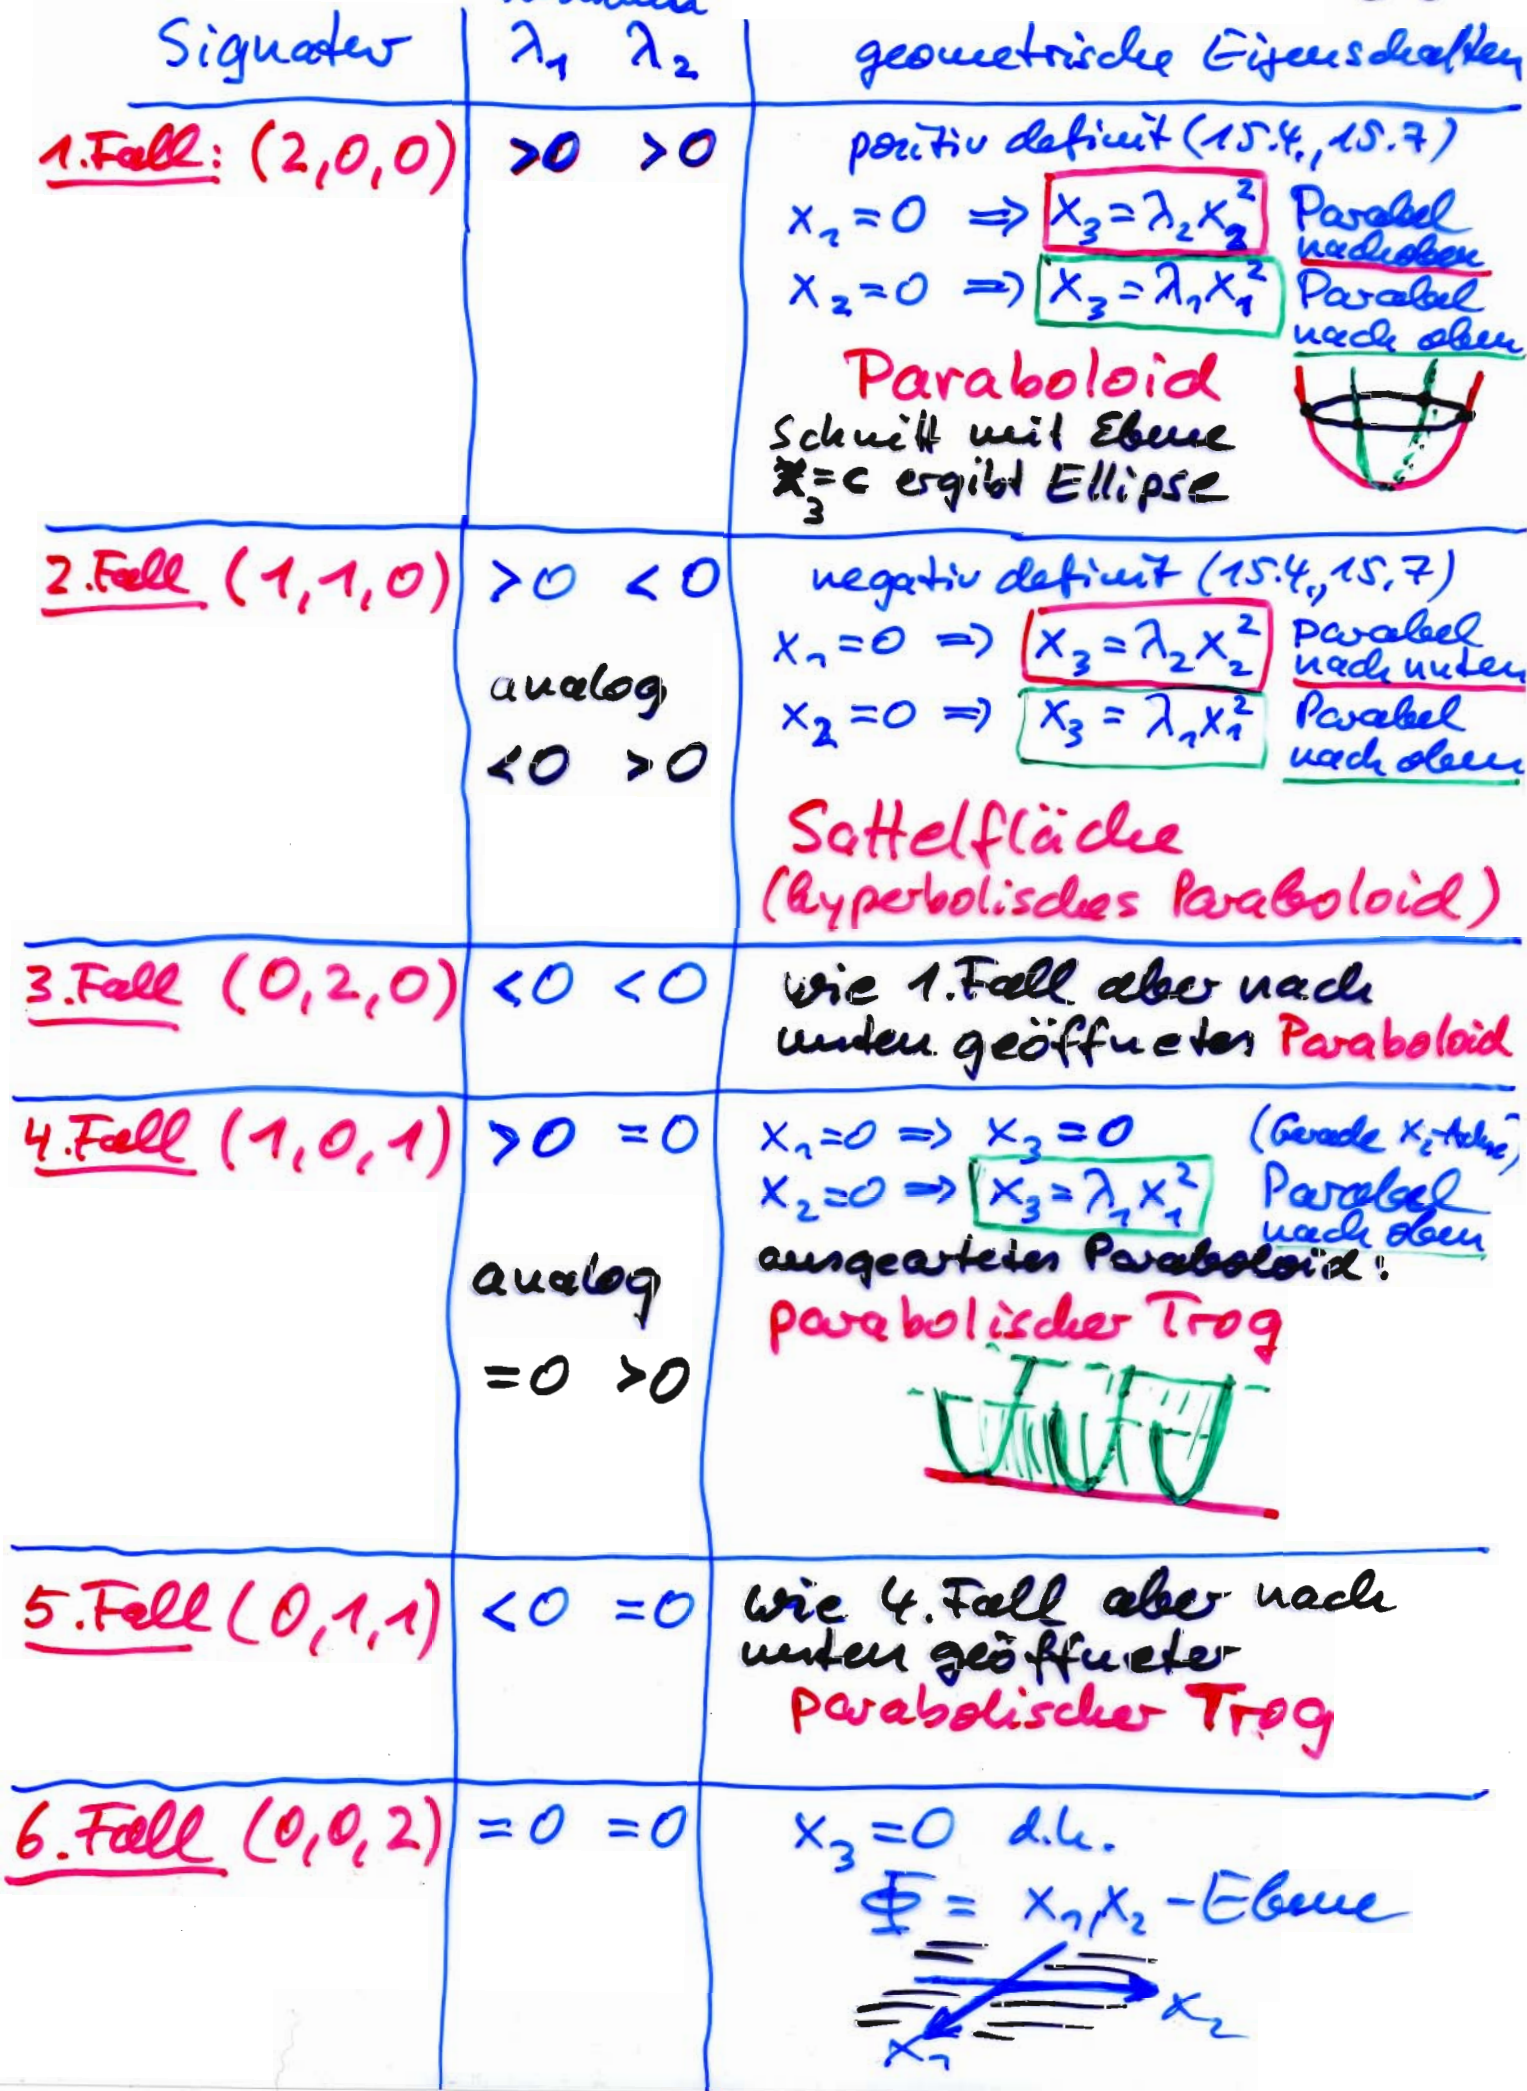 Signatur λ₁ λ₂ geometrische Eigenschaften
1.Fall: (2,0,0) >0 >0 positiv definit (15.4., 15.7)
x₁=0 ⇒ x₃=λ₂x₂² Parabel
nach oben
x₂=0 ⇒ x₃=λ₁x₁² Parabel
nach oben
Paraboloid
Schnitt mit Ebene
x₃=c ergibt Ellipse
2.Fall (1,1,0) >0 <0 negativ definit (15.4., 15.7)
x₁=0 ⇒ x₃=λ₂x₂² Parabel
nach unten
analog
x₂=0 ⇒ x₃=λ₁x₁² Parabel
nach oben
<0 >0
Sattelfläche
(hyperbolisches Paraboloid)
3.Fall (0,2,0) <0 <0 wie 1.Fall aber nach
unten geöffnetes Paraboloid
4.Fall (1,0,1) >0 =0 x₁=0 ⇒ x₃=0 (Gerade x₂-Achse)
x₂=0 ⇒ x₃=λ₁x₁² Parabel
nach oben
analog
ausgeartetes Paraboloid:
parabolischer Trog
=0 >0
5.Fall (0,1,1) <0 =0 wie 4.Fall aber nach
unten geöffneter
parabolischer Trog
6.Fall (0,0,2) =0 =0 x₃=0 d.h.
Φ = x₁,x₂-Ebene
x₂
x₁